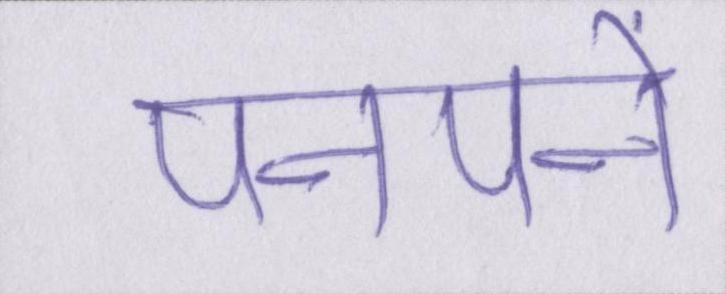 पनपनें